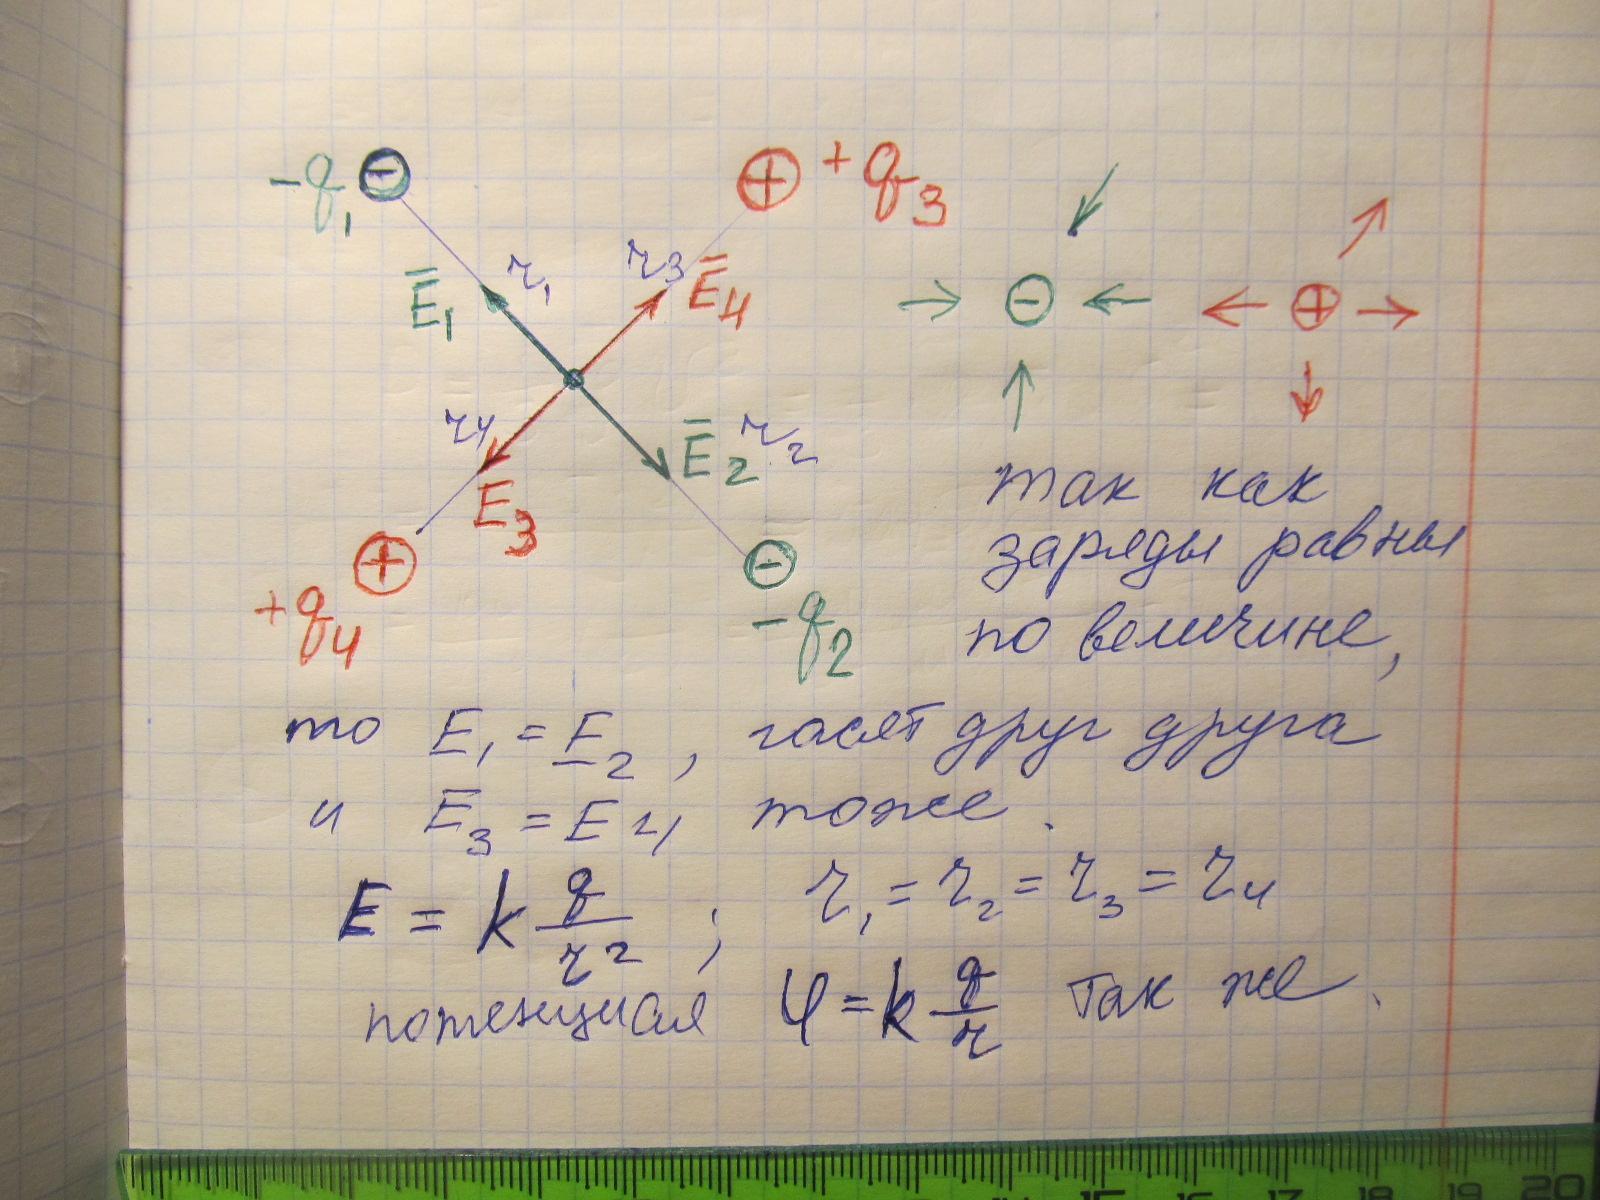 -q₁ ⊖
⊕ +q₃
r₁
r₃
Ē₁
Ē₄
⊖
⊕
r₄
Ē₂ r₂
E₃
⊕
+q₄
⊖
-q₂
так как
заряды равны
по величине,
то E₁ = E₂, гасят друг друга
и E₃ = E₄ тоже.
E = k q/r² ; r₁ = r₂ = r₃ = r₄
потенциал φ = k q/r так же.
15 16 17 18 19 20